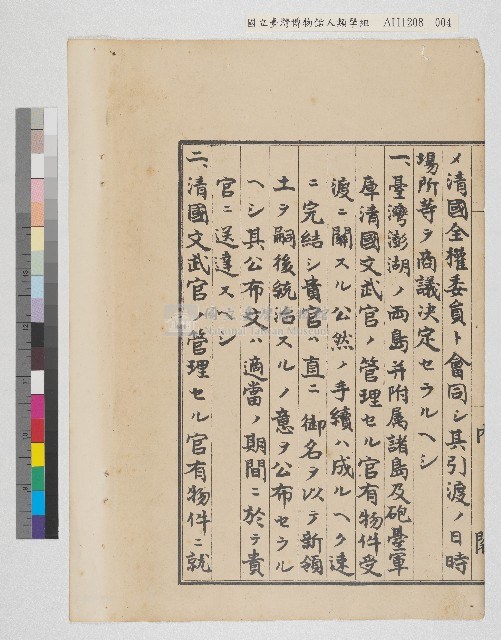 國立臺灣博物館人類學組 AH1208 004
メ清國全權委員ト會同シ其引渡ノ日時
場所等ヲ商議決定セラルヘシ
一、臺灣澎湖ノ両島并附属諸島及砲臺軍
庫清國文武官ノ管理セル官有物件受
渡ニ關スル公然ノ手續ハ成ルヘク速
ニ完結シ貴官ハ直ニ 御名ヲ以テ新領
土ヲ嗣後統治スルノ意ヲ公布セラル
ヘシ其公布文ハ適當ノ期間ニ於テ貴
官ニ送達スヘシ
二、清國文武官ノ管理セル官有物件ニ就
內 閣
國立臺灣博物館
National Taiwan Museum